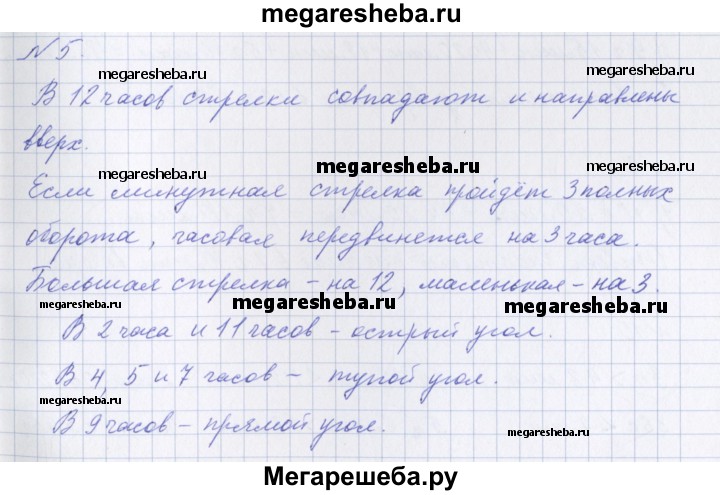 megaresheba.ru
N 5.
megaresheba.ru
megaresheba.ru
В 12 часов стрелки совпадают и направлены
вверх.
megaresheba.ru
megaresheba.ru
megaresheba.ru
Если минутная стрелка пройдёт 3 полных
оборота, часовая передвинется на 3 часа.
Большая стрелка – на 12, маленькая – на 3.
megaresheba.ru
megaresheba.ru
megaresheba.ru
В 2 часа и 11 часов – острый угол.
В 4, 5 и 7 часов – тупой угол.
megaresheba.ru
В 9 часов – прямой угол.
megaresheba.ru
megaresheba.ru
Мегарешеба.ру